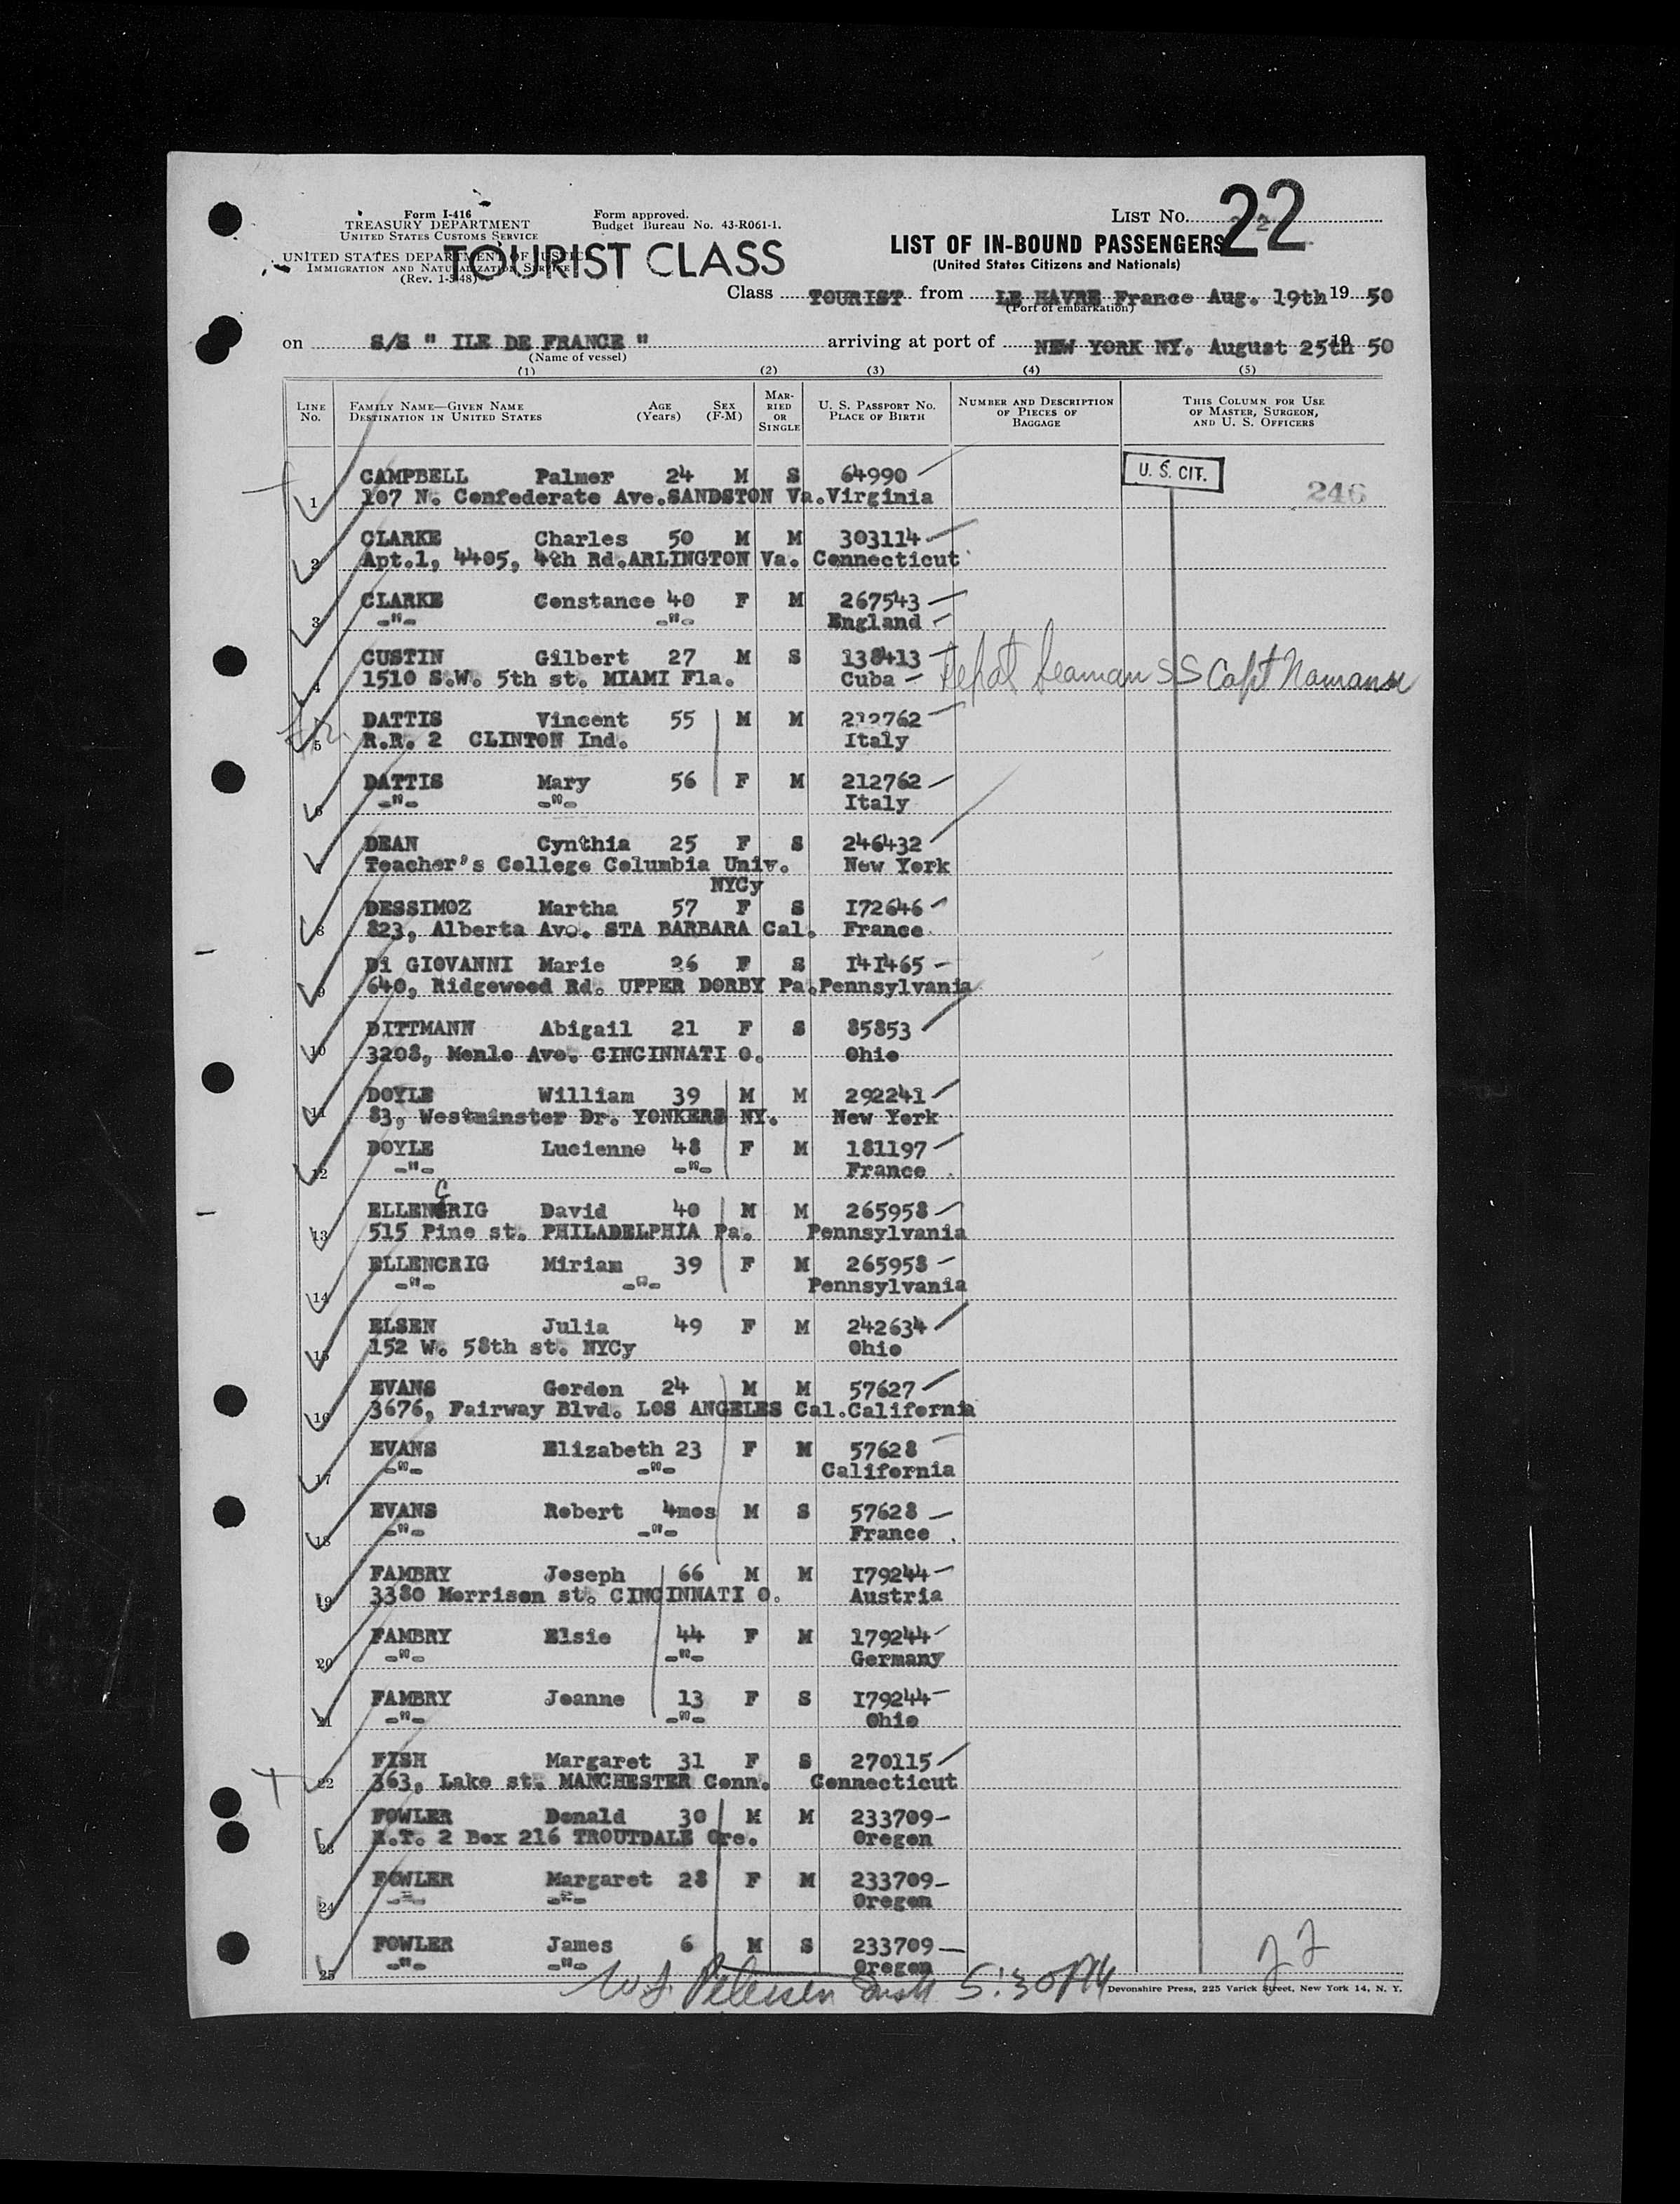 Form I-416
TREASURY DEPARTMENT
UNITED STATES CUSTOMS SERVICE
UNITED STATES DEPARTMENT OF JUSTICE
IMMIGRATION AND NATURALIZATION SERVICE
(Rev. 1-5-48)
Form approved.
Budget Bureau No. 43-R061-1.
TOURIST CLASS
LIST No. 22
LIST OF IN-BOUND PASSENGERS
(United States Citizens and Nationals)
Class TOURIST from LE HAVRE France Aug. 19th 19 50
(Port of embarkation)
on S/S " ILE DE FRANCE " arriving at port of NEW YORK NY. August 25th 19 50
(Name of vessel)
(1) (2) (3) (4) (5)
LINE No. FAMILY NAME—GIVEN NAME DESTINATION IN UNITED STATES AGE (Years) SEX (F-M) MARRIED OR SINGLE U. S. PASSPORT No. PLACE OF BIRTH NUMBER AND DESCRIPTION OF PIECES OF BAGGAGE THIS COLUMN FOR USE OF MASTER, SURGEON, AND U. S. OFFICERS
U. S. CIT.
246
1 CAMPBELL Palmer 24 M S 64990
107 N. Confederate Ave.SANDSTON Va.Virginia
2 CLARKE Charles 50 M M 303114
Apt.1, 4405, 4th Rd.ARLINGTON Va. Connecticut
3 CLARKE Constance 40 F M 267543
-"- -"- England
4 CUSTIN Gilbert 27 M S 138413
1510 S.W. 5th st. MIAMI Fla. Cuba
Seaman SS Capt
5 DATTIS Vincent 55 M M 212762
R.R. 2 CLINTON Ind. Italy
6 DATTIS Mary 56 F M 212762
-"- -"- Italy
7 DEAN Cynthia 25 F S 246432
Teacher's College Columbia Univ. New York
NYCy
8 DESSIMOZ Martha 57 F S I72646
823, Alberta Ave. STA BARBARA Cal. France
9 Di GIOVANNI Marie 26 F S I4I465
640, Ridgewood Rd. UPPER DORBY Pa.Pennsylvania
10 DITTMANN Abigail 21 F S 85853
3208, Menlo Ave. CINCINNATI O. Ohio
11 DOYLE William 39 M M 292241
83, Westminster Dr. YONKERS NY. New York
12 DOYLE Lucienne 48 F M 181197
-"- -"- France
13 ELLENCRIG David 40 M M 265958
515 Pine st. PHILADELPHIA Pa. Pennsylvania
14 ELLENCRIG Miriam 39 F M 265958
-"- -"- Pennsylvania
15 ELSEN Julia 49 F M 242634
152 W. 58th st. NYCy Ohio
16 EVANS Gordon 24 M M 57627
3676, Fairway Blvd. LOS ANGELES Cal.California
17 EVANS Elizabeth 23 F M 57628
-"- -"- California
18 EVANS Robert 4mos M S 57628
-"- -"- France
19 FAMBRY Joseph 66 M M I79244
3380 Morrison st. CINCINNATI O. Austria
20 FAMBRY Elsie 44 F M 179244
-"- -"- Germany
21 FAMBRY Jeanne 13 F S I79244
-"- -"- Ohio
22 FISH Margaret 31 F S 270115
363, Lake st. MANCHESTER Conn. Connecticut
23 FOWLER Donald 30 M M 233709
R.T. 2 Box 216 TROUTDALE Ore. Oregon
24 FOWLER Margaret 28 F M 233709
-"- -"- Oregon
25 FOWLER James 6 M S 233709
-"- -"- Oregon
Petersen 5:30 PM
Devonshire Press, 225 Varick Street, New York 14, N. Y.